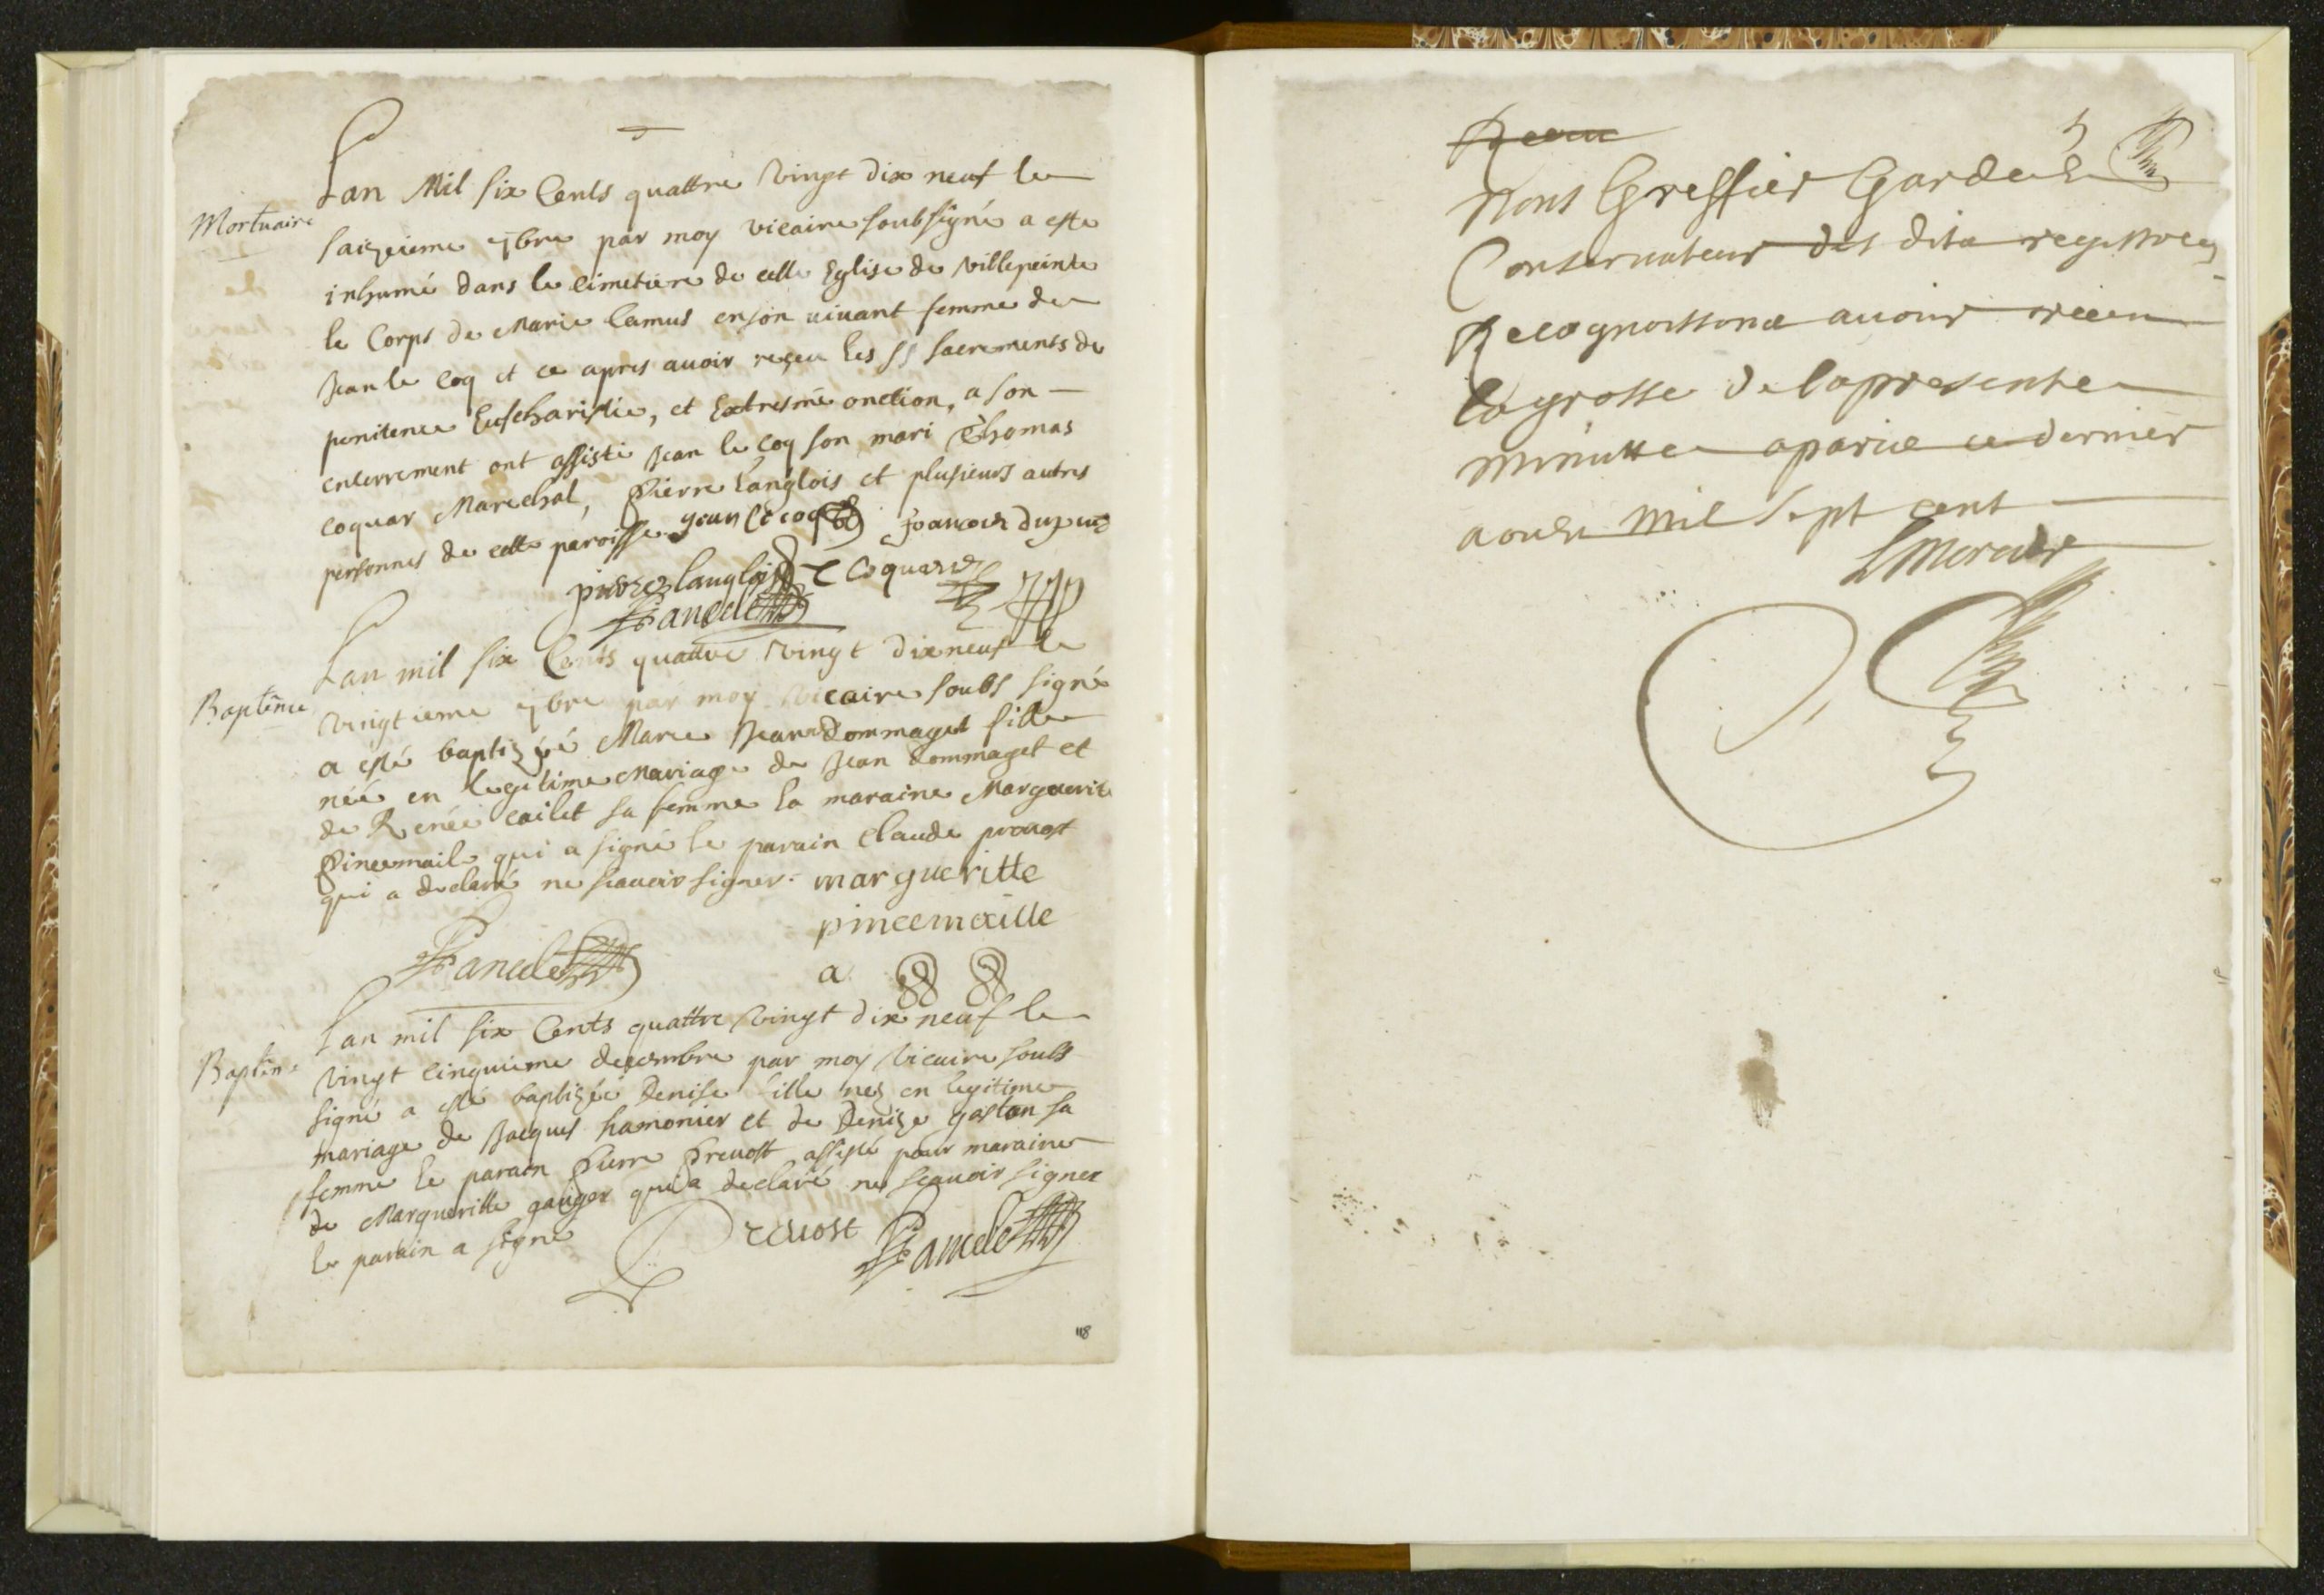 Lan Mil six Cents quattre vingt dix neuf le
Mortuaire
saizieme 9bre par moy vicaire soubsigné a esté
inhumé dans le cimetiere de cette Eglise de villepeinte
le Corps de Marie Camus en son vivant femme de
Jean le coq et ce apres avoir reçeu les SS sacrements de
penitence Euscharistie, et Extresme onction, a son
enterrement ont assisté Jean le coq son mari Thomas
coquar Marechal, Pierre Langlois et plusieurs autres
personnes de cette paroisse. Jean le coq francois dupuis
pierre langlois T Coquard
Lan mil six Cents quattre vingt dix neuf le
Baptême
vingtieme 9bre par moy vicaire soubs signé
a esté baptizéé Marie Jeanne dommaget fille
néé en legitime Mariage de Jean dommaget et
de Renéé cailet sa femme la maraine Marguerite
Pincemaile qui a signé le parain Claude provost
qui a declaré ne scavoir signer. margueritte
pincemaille
a
Lan mil six Cents quattre vingt dix neuf le
Baptême
vingt cinquieme decembre par moy vicaire soubs
signé a esté baptizéé Denise fille nez en legitime
mariage de Jacques hamonier et de Denize gaston sa
femme le parain Pierre Prevost assisté pour maraine
de Margueritte gauger qui a declaré ne scavoir signer
le parain a signé Prevost
118
Receu
5
Nous Greffier Garde &
Conservateur des dits registres
Recognoissons avoir receu
la grosse de la presente
minutte a paris ce dernier
aoust mil sept cent
LMercier